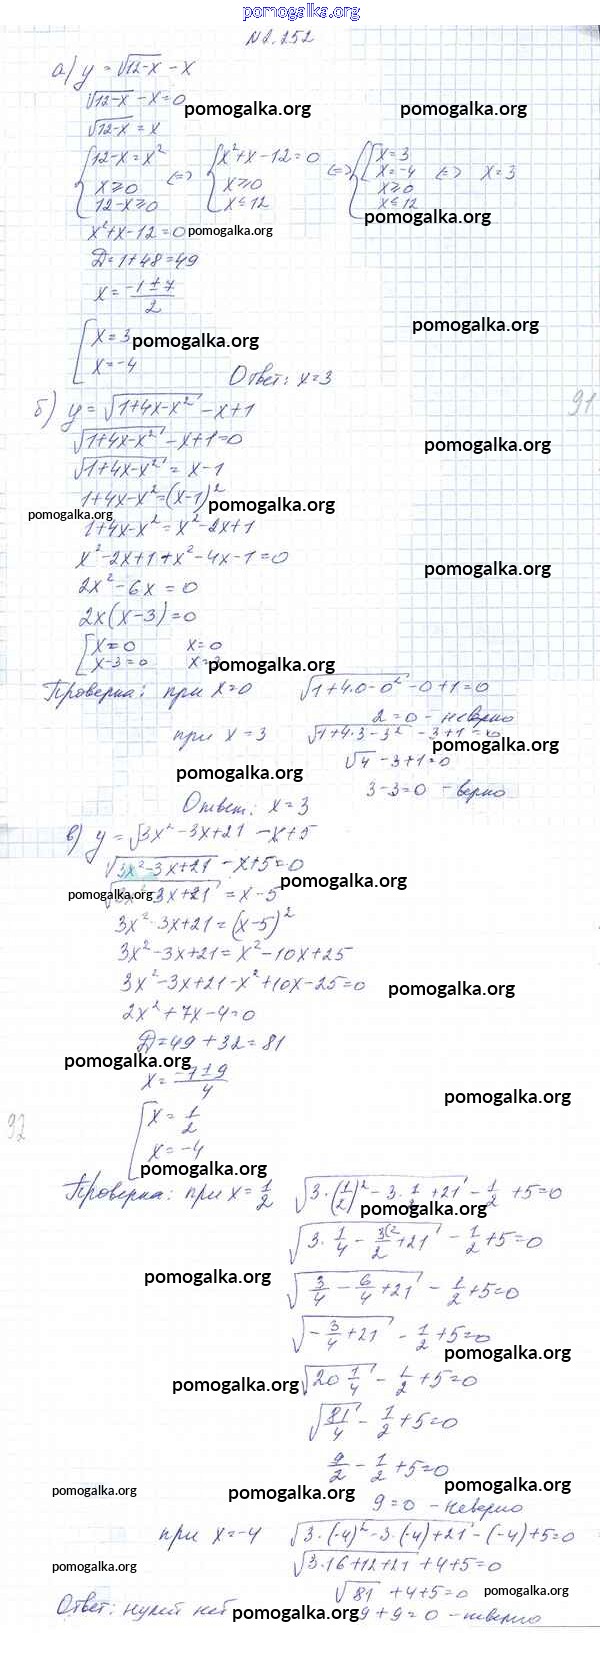 pomogalka.org
№1.252
а) y = √(12-x) - x
√(12-x) - x = 0
pomogalka.org pomogalka.org
√(12-x) = x
{12-x = x² {x²+x-12=0 {[x=3
x≥0 <=> x≥0 <=> x=-4 <=> x=3
12-x≥0 x≤12 x≥0
x≤12
pomogalka.org
x²+x-12=0 pomogalka.org
D=1+48=49
x = (-1±7)/2
pomogalka.org
[x=3 pomogalka.org
x=-4
Ответ: x=3
б) y = √(1+4x-x²) - x+1 91
√(1+4x-x²) - x+1=0 pomogalka.org
√(1+4x-x²) = x-1
1+4x-x²=(x-1)² pomogalka.org
pomogalka.org
1+4x-x² = x²-2x+1
x²-2x+1+x²-4x-1=0 pomogalka.org
2x²-6x=0
2x(x-3)=0
[x=0 x=0
x-3=0 x=3 pomogalka.org
Проверка: при x=0 √(1+4·0-0²)-0+1=0
2=0 - неверно
при x=3 √(1+4·3-3²) -3+1=0
pomogalka.org
√4 -3+1=0
pomogalka.org
3-3=0 - верно
Ответ: x=3
в) y = √(3x²-3x+21) - x+5
√(3x²-3x+21) - x+5=0
pomogalka.org
√(3x²-3x+21) = x-5
pomogalka.org
3x²-3x+21=(x-5)²
3x²-3x+21=x²-10x+25
3x²-3x+21-x²+10x-25=0 pomogalka.org
2x²+7x-4=0
D=49+32=81
pomogalka.org
x = (-7±9)/4
pomogalka.org
92 [x = 1/2
x=-4
pomogalka.org
Проверка: при x=1/2 √(3·(1/2)²-3·1/2+21) - 1/2 +5=0
pomogalka.org
√(3·1/4 - 3\2/2 +21) - 1/2+5=0
pomogalka.org
√(3/4 - 6/4 +21) - 1/2+5=0
√(-3/4+21) - 1/2+5=0
pomogalka.org
√(20 1/4) - 1/2+5=0
pomogalka.org
√(81/4) - 1/2+5=0
9/2 - 1/2+5=0
pomogalka.org pomogalka.org pomogalka.org
9=0 - неверно
при x=-4 √(3·(-4)²-3·(-4)+21) -(-4)+5=0
√(3·16+12+21) +4+5=0
pomogalka.org
√81 +4+5=0 pomogalka.org
Ответ: нулей нет pomogalka.org 9+9=0 - неверно